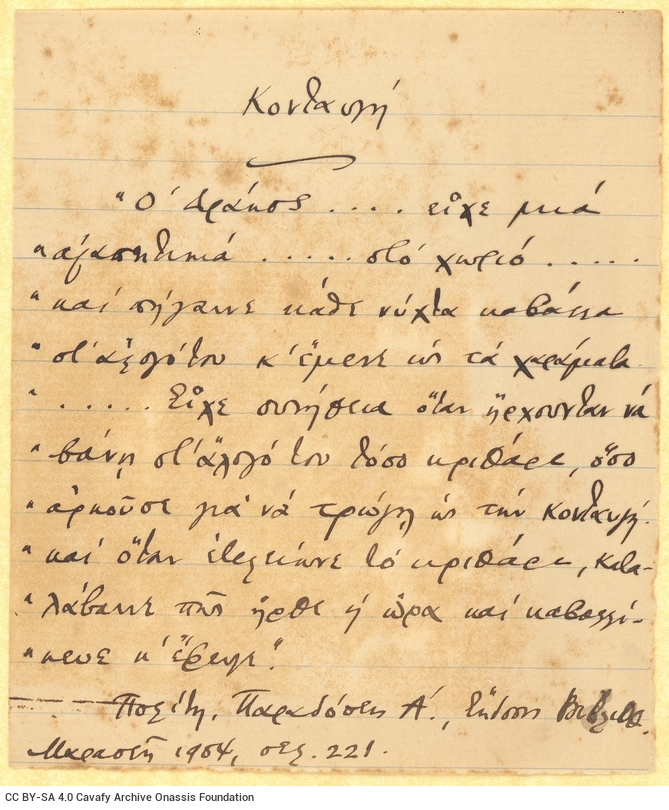 Κονταυγή
"Ο Δράκος .... είχε μιά
"αγαπητικιά ..... στό χωριό .....
"καί πήγαινε κάθε νύχτα καβάλλα
"στ' άλογό του κ' έμενε ως τά χαράματα
"...... Είχε συνήθεια όταν ήρχουνταν νά
"βάνη στ' άλογό του τόσο κριθάρι, όσο
"αρκούσε γιά νά τρώγη ως την Κονταυγή.
"καί όταν ετελείωνε τό κριθάρι, κατα-
"λάβαινε πως ήρθε η ώρα και καβαλλί-
"κευε κ' έφευγε."
Πολίτη, Παραδόσεις Α'., Έκδοσις Βιβλιοθ.
Μαρασλή 1904, σελ. 221.
CC BY-SA 4.0 Cavafy Archive Onassis Foundation